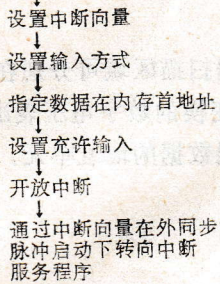 设置中断向量
设置输入方式
指定数据在内存首地址
设置充许输入
开放中断
通过中断向量在外同步
脉冲启动下转向中断
服务程序